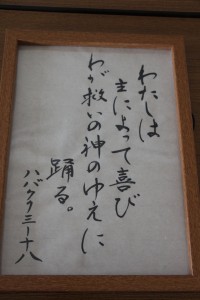 わたしは
主によって喜び
わが救いの神のゆえに
踊る。
ハバクク三ー十八